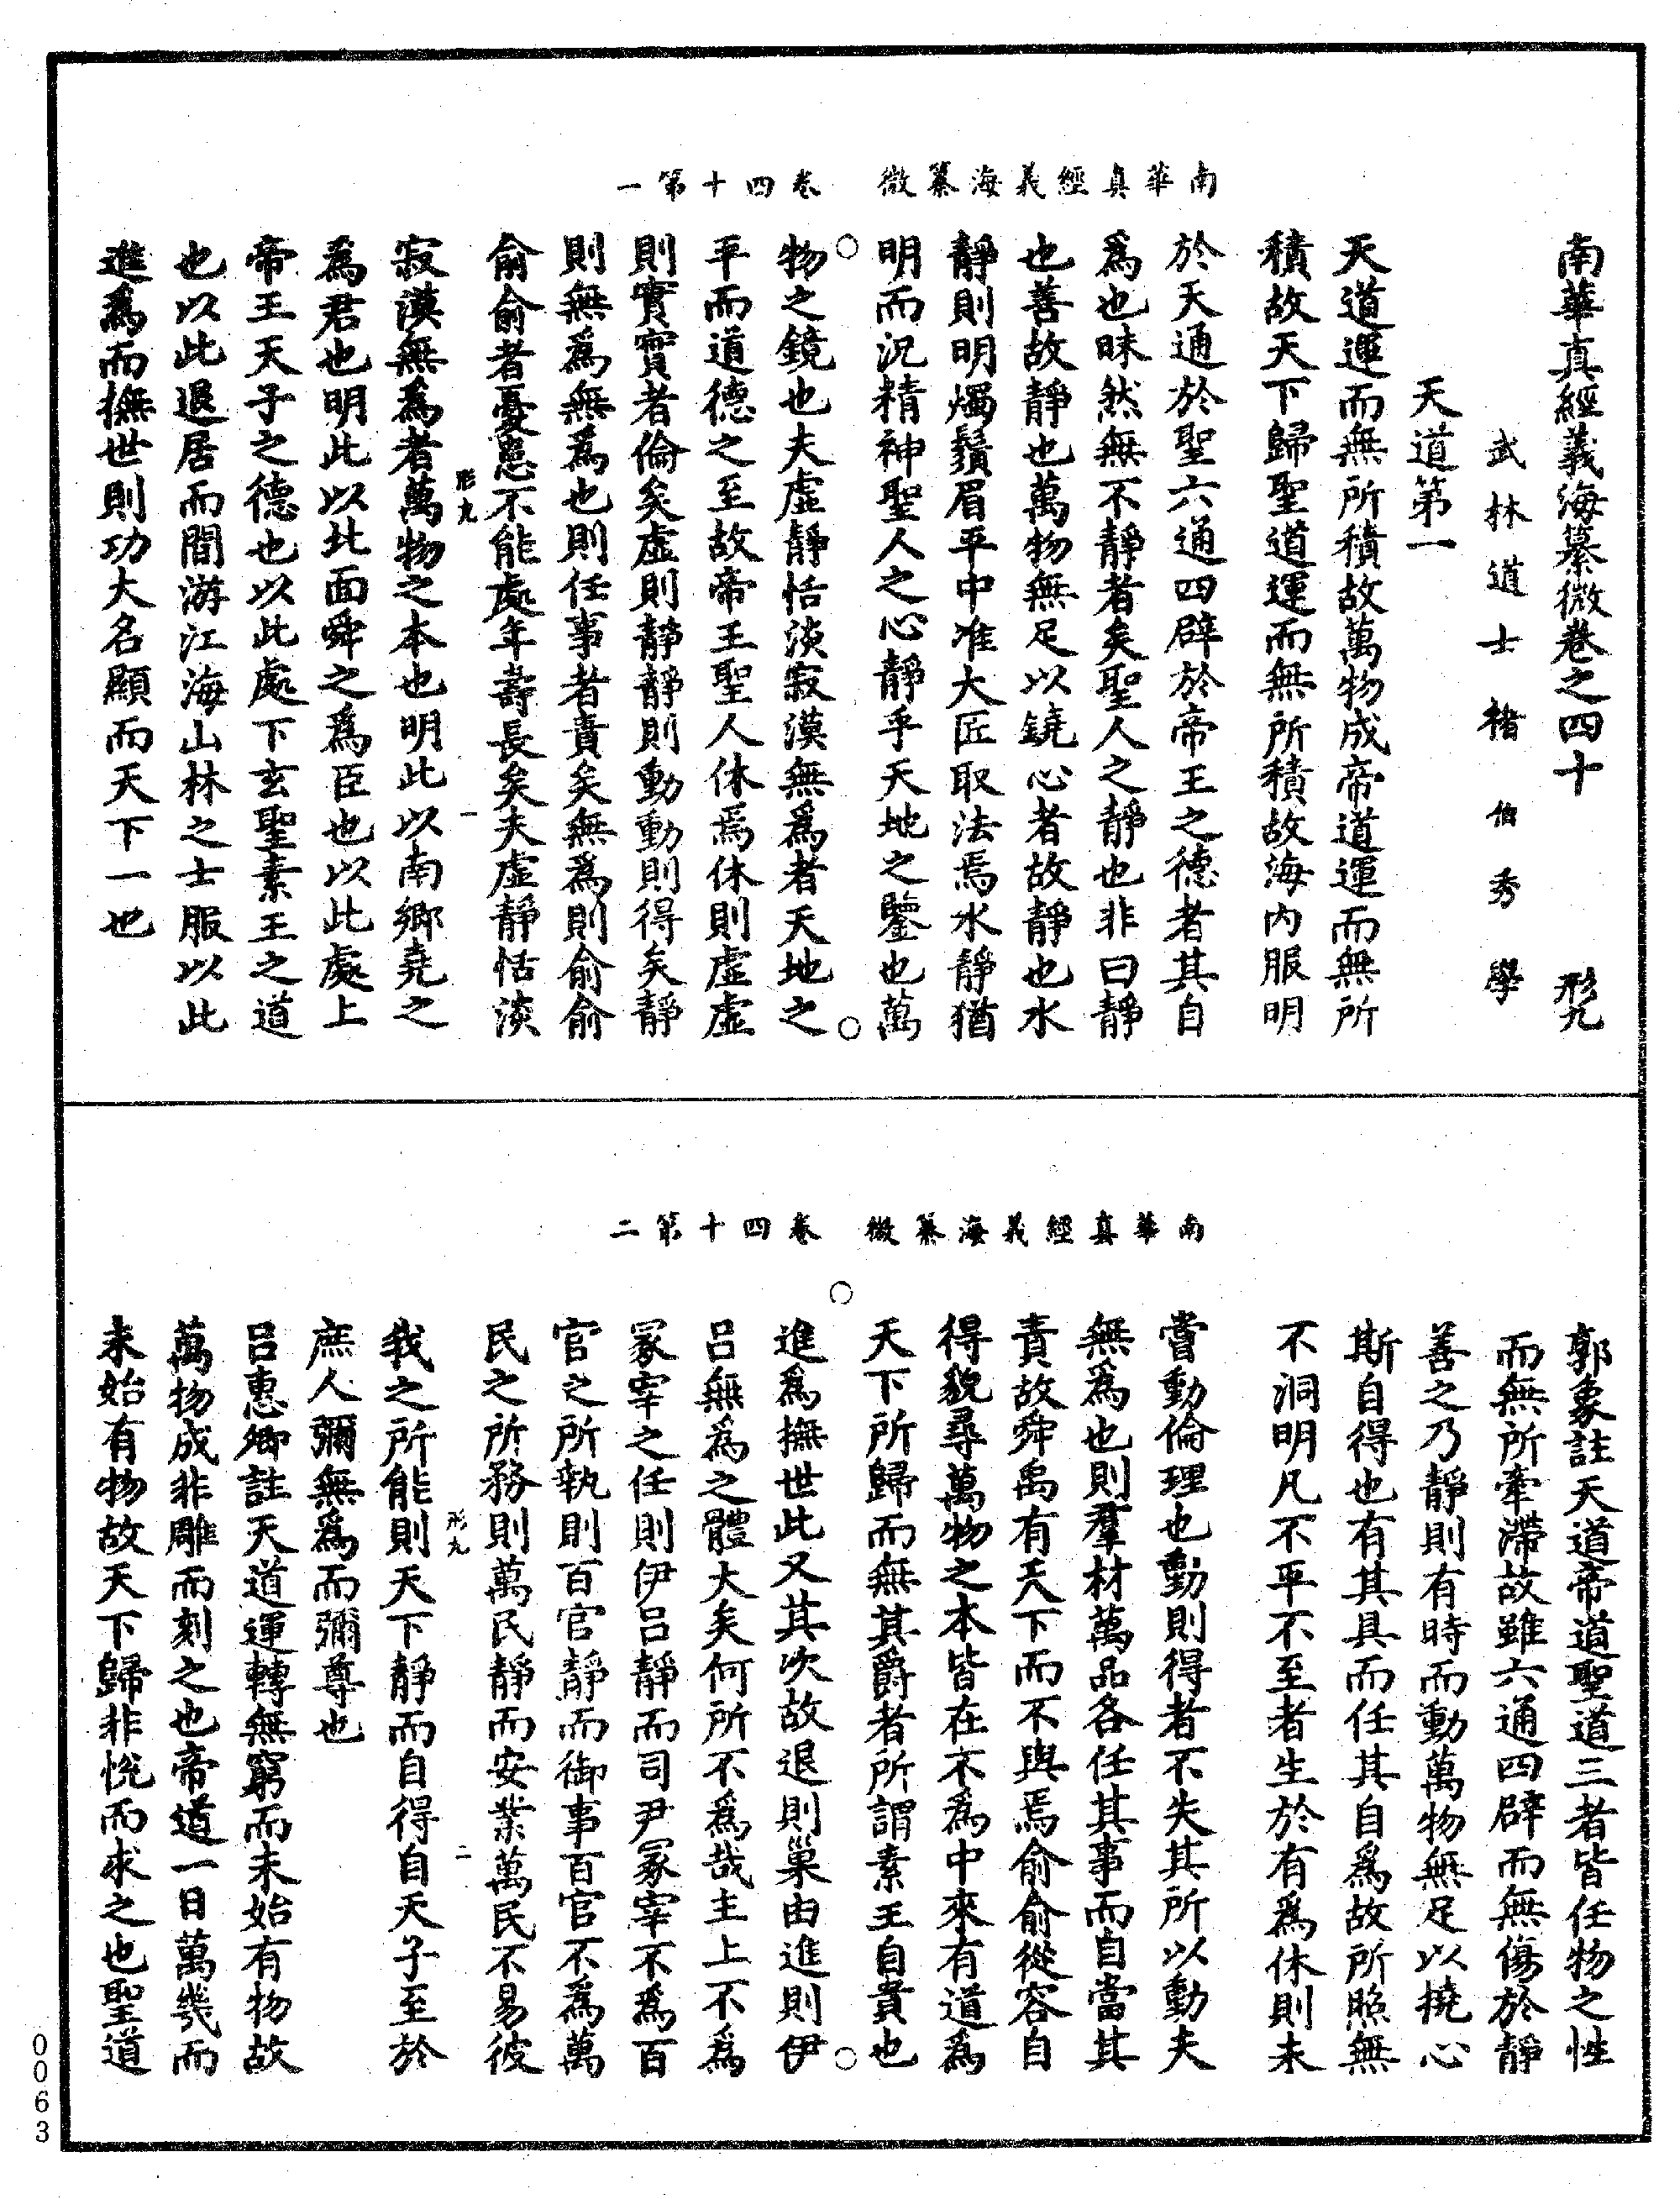 南華真經義海纂微　卷四十第一
南華真經義海纂微卷之四十　形九
武林道士褚伯秀學
天道第一
天道運而無所積故萬物成帝道運而無所
積故天下歸聖道運而無所積故海內服明
於天通於聖六通四辟於帝王之德者其自
為也昧然無不靜者矣聖人之靜也非曰靜
也善故靜也萬物無足以鐃心者故靜也水
靜則明燭鬚眉平中准大匠取法焉水靜猶
明而況精神聖人之心靜乎天地之鑒也萬
物之鏡也夫虛靜恬淡寂漠無為者天地之
平而道德之至故帝王聖人休焉休則虛虛
則實實者倫矣虛則靜靜則動動則得矣靜
則無為無為也則任事者責矣無為則俞俞
俞俞者憂患不能處年壽長矣夫虛靜恬淡
形九　一
寂漠無為者萬物之本也明此以南鄉堯之
為君也明此以北面舜之為臣也以此處上
帝王天子之德也以此處下玄聖素王之道
也以此退居而閒游江海山林之士服以此
進為而撫世則功大名顯而天下一也
南華真經義海纂微　卷四十第二
郭象註天道帝道聖道三者皆任物之性
而無所牽滯故雖六通四辟而無傷於靜
善之乃靜則有時而動萬物無足以撓心
斯自得也有其具而任其自為故所照無
不洞明凡不平不至者生於有為休則未
嘗動倫理也動則得者不失其所以動夫
無為也則羣材萬品各任其事而自當其
責故舜禹有天下而不與焉俞俞從容自
得貌尋萬物之本皆在不為中來有道為
天下所歸而無其爵者所謂素王自貴也
進為撫世此又其次故退則巢由進則伊
呂無為之體大矣何所不為哉主上不為
冢宰之任則伊呂靜而司尹冢宰不為百
官之所執則百官靜而御事百官不為萬
民之所務則萬民靜而安業萬民不易彼
形九　二
我之所能則天下靜而自得自天子至於
庶人彌無為而彌尊也
呂惠卿註天道運轉無窮而未始有物故
萬物成非雕而刻之也帝道一日萬幾而
未始有物故天下歸非悅而求之也聖道
0063